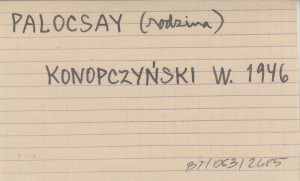 PALOCSAY (rodzina)
KONOPCZYŃSKI W. 1946
BJ/063/2485